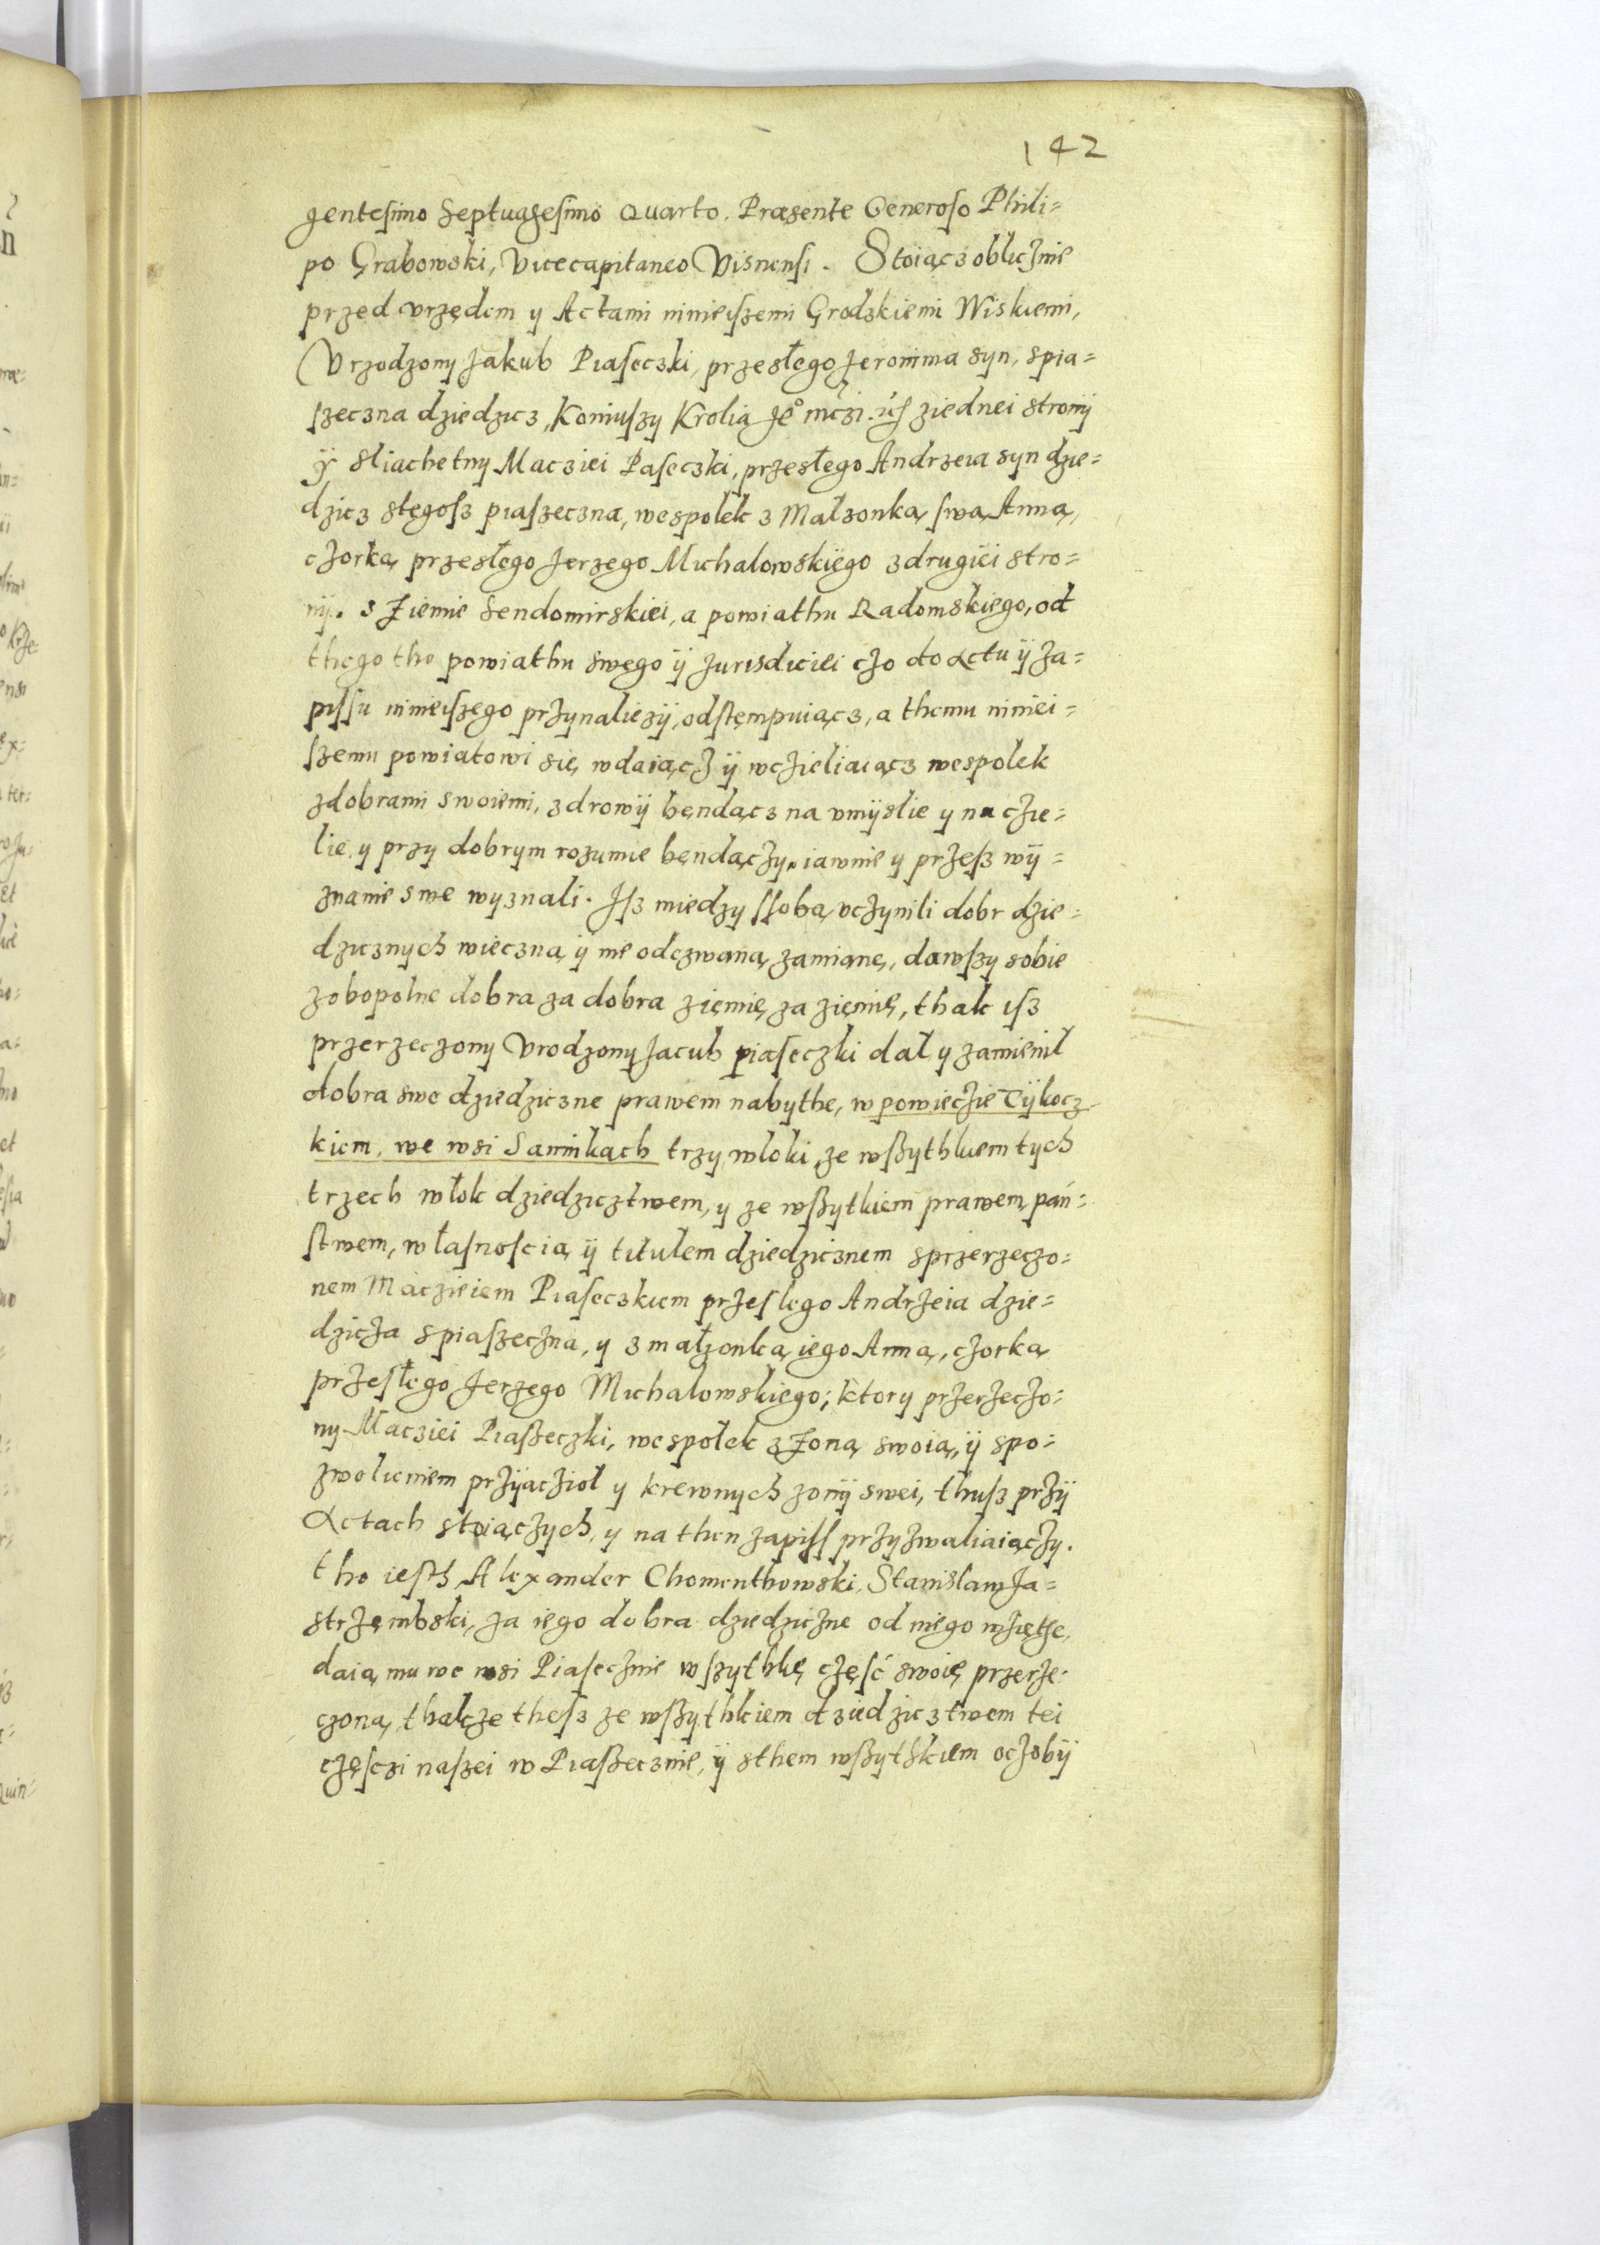 142
gentesimo Septuagesimo Quarto. Præsente Generoso Phili=
po Grabowski, Vicecapitaneo Visnensi. Stoiącz oblicznie
przed vrzędem y Actami ninieiszemi Grodzkiemi Wiskiemi,
Vrzodzony Jakub Piaseczki, przesłego Jeronima syn, spia=
szeczna dziedzicz, Koniuszy Krolia Je° mczi. ziednei strony
ÿ sliachetny Macziei Paseczki, przesłego Andrzeia syn dzie=
dzicz stęgosz piaszeczna, wespolek z Malzonką swą Anną,
czorką przesłego Jerzego Michalowskiego zdrugiei stro=
nÿ. s Ziemie Sendomirskiei, a powiathu Radomskiego, od
thego tho powiathu swego ÿ Jurisdiciei czo do Actu ÿ za=
pissu ninieiszego przynaliezÿ, odstęmpuiącz, a themu niniei=
szemu powiatowi się wdaiącz ÿ wczieliaiącz wespolek
zdobrami swoiemi, zdrowÿ bęndącz na vmÿslie y na czie=
lie y przy dobrym rozumie bęndączy, iawnie y przesz wÿ=
znanie swe wyznali. Isz miedzy ssobą vczynili dobr dzie=
dzicznych wieczną ÿ nieodezwaną zamianę, dawszy sobie
zobopolne dobra za dobra ziemię za ziemię, thak isz
przerzeczony Vrodzony Jacub piaseczki dał y zamienił
dobra swe dziedziczne prawem nabythe, w powieczie Tÿkocz=
kiem, we wsi Sannikach trzy wloki, ze wszythkiem tych
trzech włok dziedzicztwem, y ze wszytkiem prawem, pań=
stwem, własnoscią ÿ titulem dziedzicznem sprzerzeczo=
nem Maczieiem Piaseczkiem przeslego Andrzeia dzie=
dzicza spiaszeczna, y z małzonką iego Anną, czorką
przesłego Jerzego Michalowskiego; ktory przerzeczo=
ny Macziei Piaszeczki, wespołek z Zoną swoią, ÿ spo=
zwolieniem przÿacziol y krewnych zonÿ swei, thusz przÿ
Actach stoiączych, y na then zapiss przyzwaliaiączy.
tho iesth Alexander Chomenthowski, Stanislaw Ja=
strzęmbski, za iego dobra dziedziczne od niego wzięthe,
daią mu we wsi Piasecznie wszythkę częsć swoię przerze=
czoną, thakze thesz ze wszythkiem dziedzicztwem tei
częsczi naszei w Piaszecznie, ÿ sthem wszythkiem oczobÿ